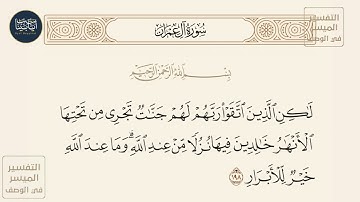 سُورَةُ آلِ عِمْرَانَ
التفسير
الميسر
في الوصف
بِسْمِ ٱللَّهِ ٱلرَّحْمَٰنِ ٱلرَّحِيمِ
لَٰكِنِ ٱلَّذِينَ ٱتَّقَوْا۟ رَبَّهُمْ لَهُمْ جَنَّٰتٌ تَجْرِى مِن تَحْتِهَا
ٱلْأَنْهَٰرُ خَٰلِدِينَ فِيهَا نُزُلًا مِّنْ عِندِ ٱللَّهِ ۗ وَمَا عِندَ ٱللَّهِ
خَيْرٌ لِّلْأَبْرَارِ ١٩٨
التفسير
الميسر
في الوصف